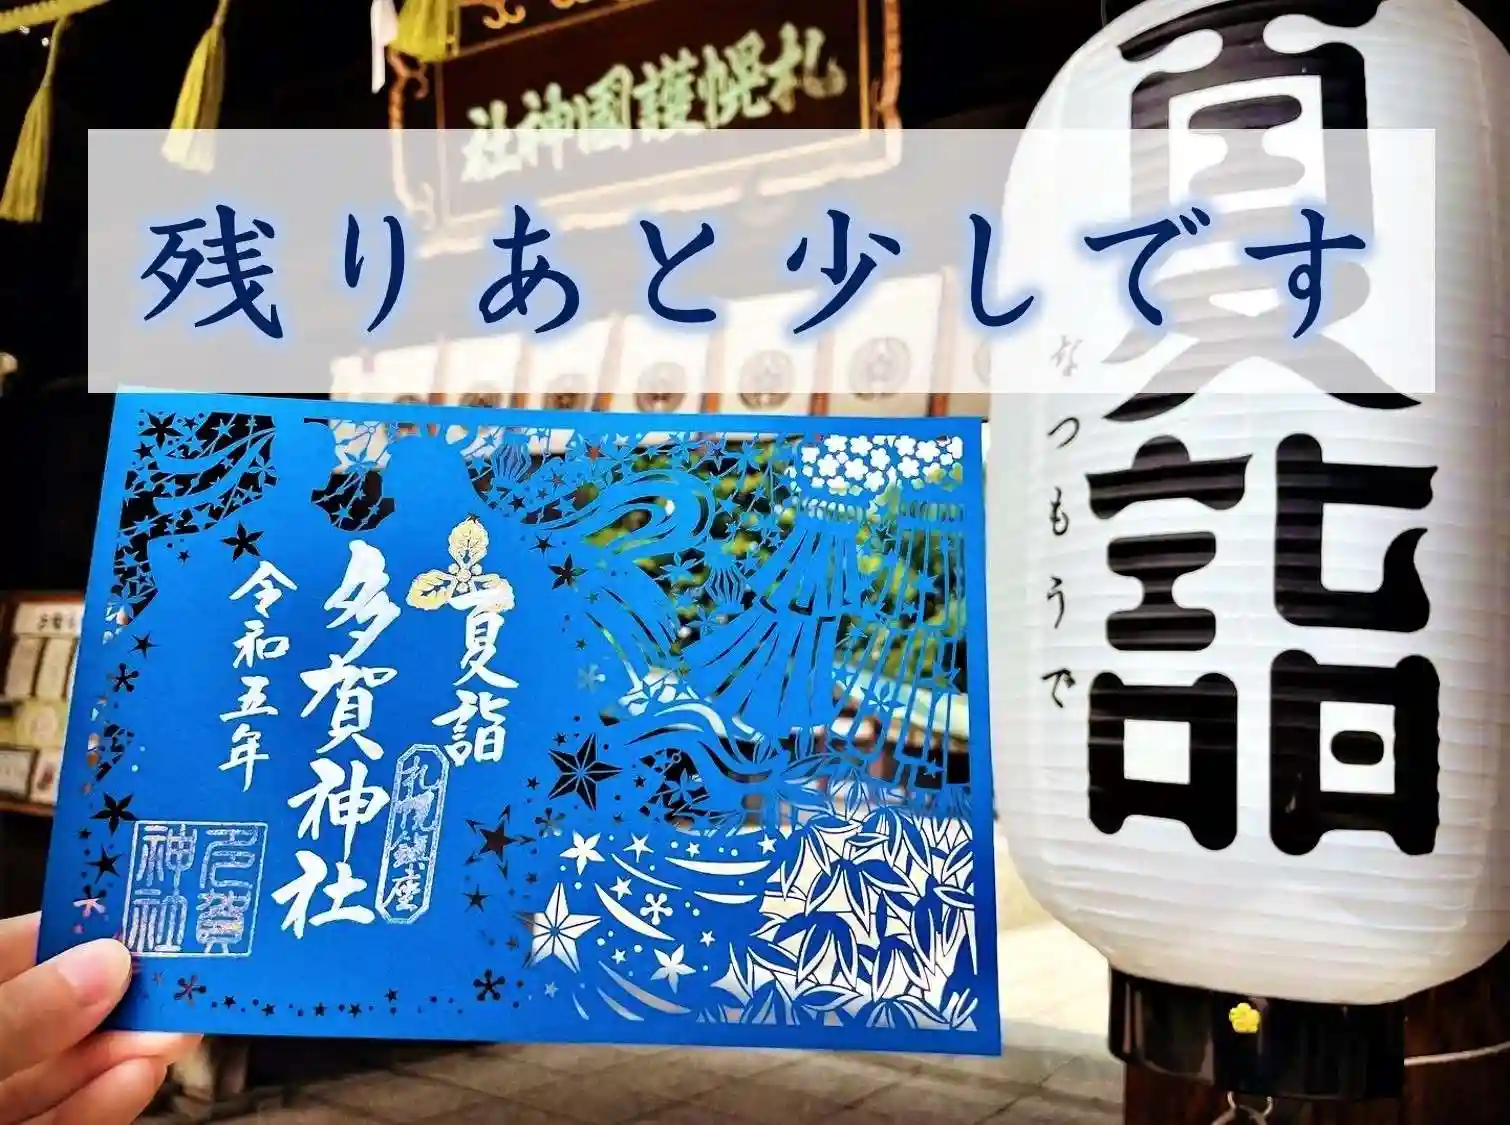 札幌護國神社
残りあと少しです
夏詣
なつもうで
夏詣
札幌鎮座
多賀神社
令和五年
多賀神社